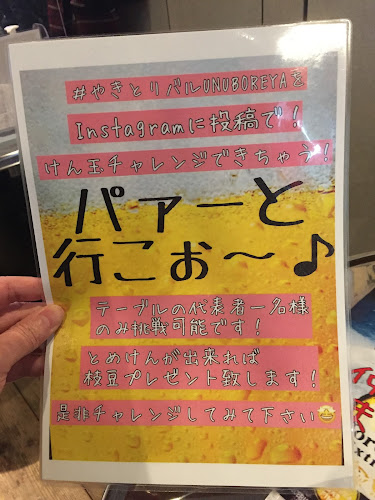 #やきとりバルUNUBOREYAを
Instagramに投稿で！
けん玉チャレンジできちゃう！
パァーと
行こお〜♪
テーブルの代表者一名様
のみ挑戦可能です！
とめけんが出来れば
枝豆プレゼント致します！
是非チャレンジしてみて下さい🤩